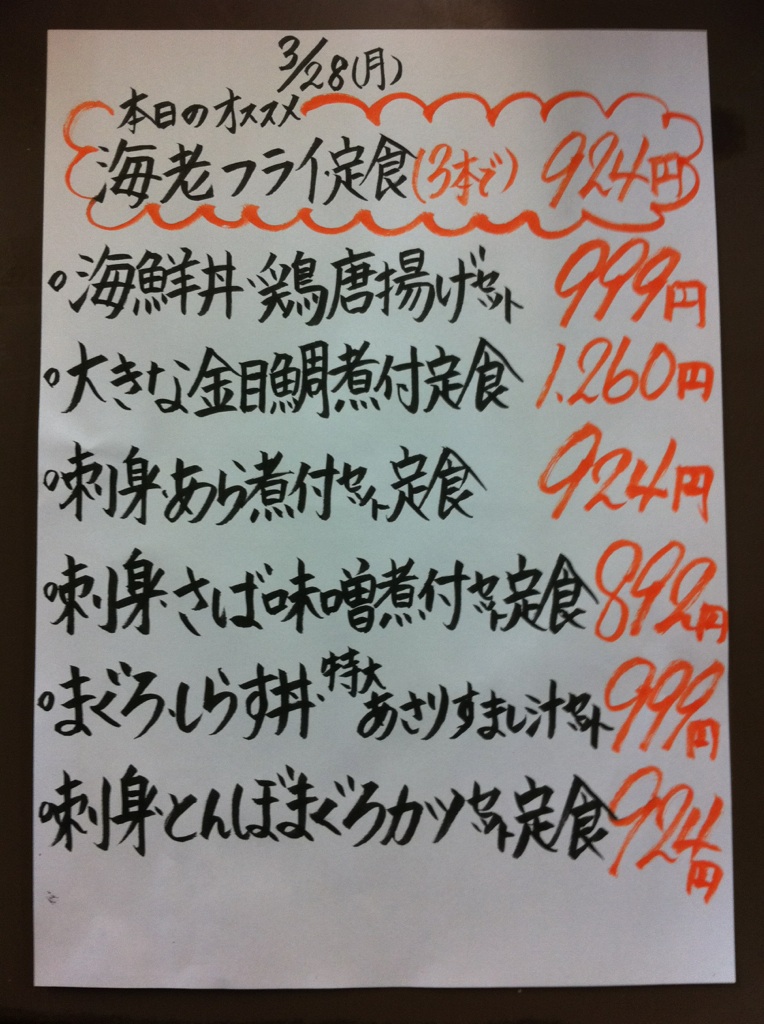 3/28(月)
本日のオススメ
海老フライ定食(3本で) 924円
。海鮮丼・鶏唐揚げセット 999円
。大きな金目鯛煮付定食 1.260円
。刺身・あら煮付セット定食 924円
。刺身・さば味噌煮付セット定食 892円
。まぐろ・しらす丼・特大あさりすまし汁セット 999円
。刺身・とんぼまぐろカツセット定食 924円